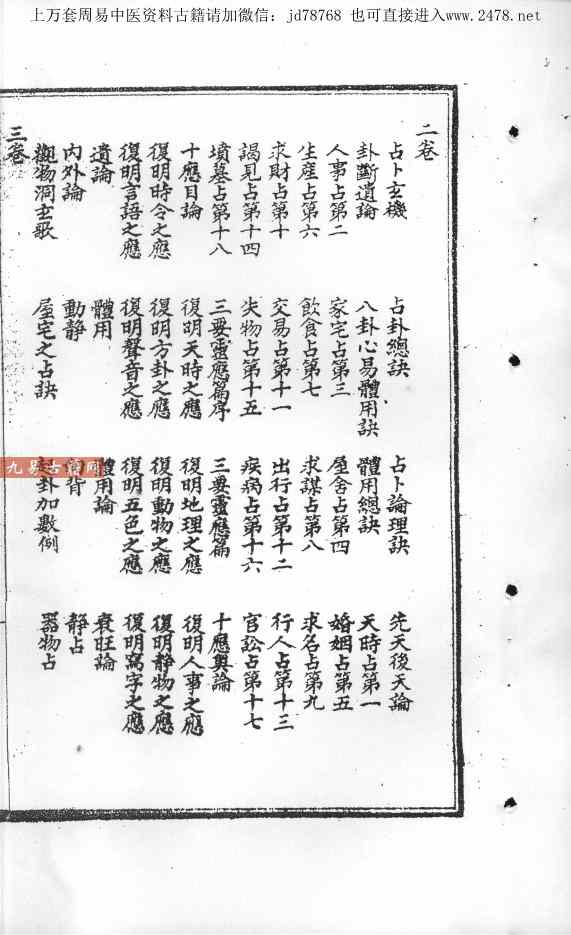 上万套周易中医资料古籍请加微信：jd78768 也可直接进入www.2478.net
二卷
占卜玄機 占卦總訣 占卜論理訣 先天後天論
卦斷遺論 八卦心易體用訣 體用總訣 天時占第一
人事占第二 家宅占第三 屋舍占第四 婚姻占第五
生産占第六 飲食占第七 求謀占第八 求名占第九
求財占第十 交易占第十一 出行占第十二 行人占第十三
謁見占第十四 失物占第十五 疾病占第十六 官訟占第十七
墳墓占第十八 三要靈應篇序 三要靈應篇 十應奧論
十應目論 復明天時之應 復明地理之應 復明人事之應
復明時令之應 復明方卦之應 復明動物之應 復明静物之應
復明言語之應 復明聲音之應 復明五色之應 復明寫字之應
遺論 體用 體用論 衰旺論
内外論 動静 背 静占
觀物洞玄歌 屋宅之占訣 起卦加數例 器物占
三卷
九易古籍网